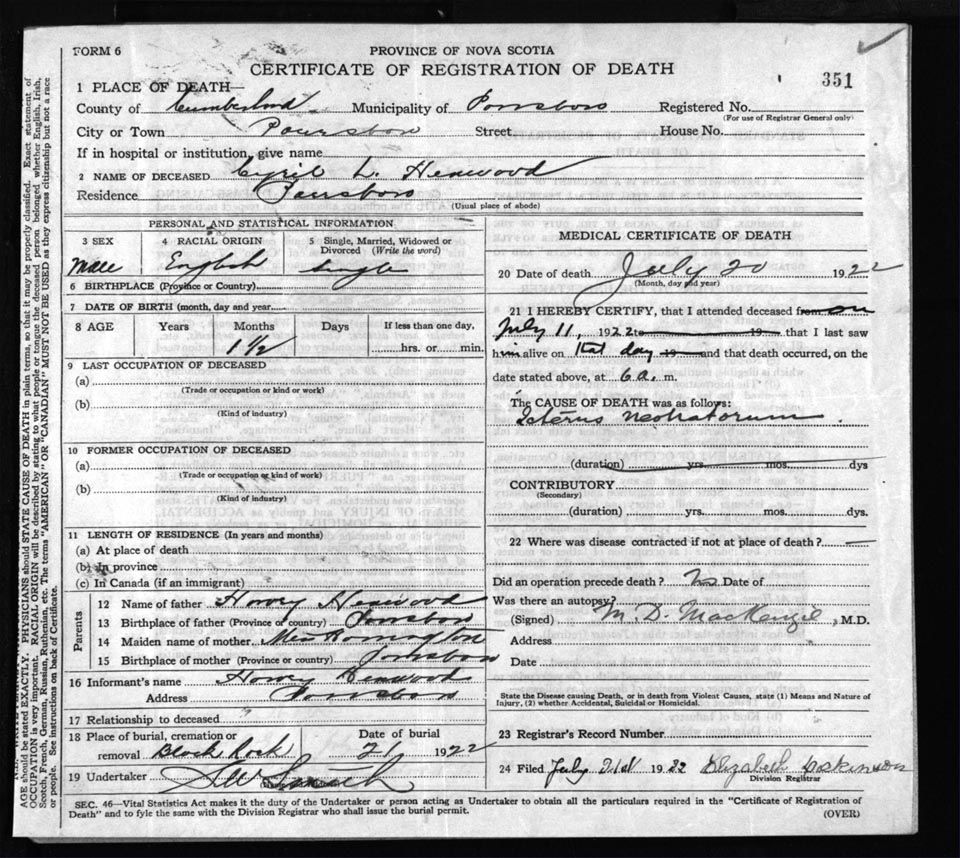 FORM 6
PROVINCE OF NOVA SCOTIA
CERTIFICATE OF REGISTRATION OF DEATH
351
1 PLACE OF DEATH—
County of Cumberland Municipality of Parrsboro Registered No.
(For use of Registrar General only)
City or Town Parrsboro Street House No.
If in hospital or institution, give name
2 NAME OF DECEASED Cyril L. Henwood
Residence Parrsboro
(Usual place of abode)
PERSONAL AND STATISTICAL INFORMATION
3 SEX 4 RACIAL ORIGIN 5 Single, Married, Widowed or Divorced (Write the word)
Male English Single
6 BIRTHPLACE (Province or Country)
7 DATE OF BIRTH (month, day and year)
8 AGE Years Months Days If less than one day,
1 1/2 hrs. or min.
9 LAST OCCUPATION OF DECEASED
(a)
(Trade or occupation or kind or work)
(b)
(Kind of industry)
10 FORMER OCCUPATION OF DECEASED
(a)
(Trade or occupation or kind of work)
(b)
(Kind of industry)
11 LENGTH OF RESIDENCE (In years and months)
(a) At place of death
(b) In province
(c) In Canada (if an immigrant)
Parents
12 Name of father Harvey Henwood
13 Birthplace of father (Province or country) Parrsboro
14 Maiden name of mother
15 Birthplace of mother (Province or country) Parrsboro
16 Informant's name Harvey Henwood
Address Parrsboro
17 Relationship to deceased
18 Place of burial, cremation or Date of burial
removal Black Rock 21 1922
19 Undertaker
MEDICAL CERTIFICATE OF DEATH
20 Date of death July 20 1922
(Month, day and year)
21 I HEREBY CERTIFY, that I attended deceased from on
July 11, 1922 to 19 that I last saw
him alive on that day 19 and that death occurred, on the
date stated above, at 6 a. m.
The CAUSE OF DEATH was as follows:
Icterus Neonatorum
(duration) yrs. mos. dys
CONTRIBUTORY
(Secondary)
(duration) yrs. mos. dys.
22 Where was disease contracted if not at place of death?
Did an operation precede death? No Date of
Was there an autopsy?
(Signed) M. D. MacKenzie, M.D.
Address
Date
State the Disease causing Death, or in death from Violent Causes, state (1) Means and Nature of
Injury, (2) whether Accidental, Suicidal or Homicidal.
23 Registrar's Record Number
24 Filed July 21st 1922 Elizabeth
Division Registrar
SEC. 46—Vital Statistics Act makes it the duty of the Undertaker or person acting as Undertaker to obtain all the particulars required in the "Certificate of Registration of
Death" and to fyle the same with the Division Registrar who shall issue the burial permit.
(OVER)
AGE should be stated EXACTLY. PHYSICIANS should STATE CAUSE OF DEATH in plain terms, so that it may be properly classified. Exact statement of
OCCUPATION is very important. RACIAL ORIGIN will be described by stating to what people or tongue the deceased person belonged whether English, Irish,
Scotch, French, German, Russian, Ruthenian, etc. The terms "AMERICAN" OR "CANADIAN" MUST NOT BE USED as they express citizenship but not a race
or people. See instructions on back of Certificate.